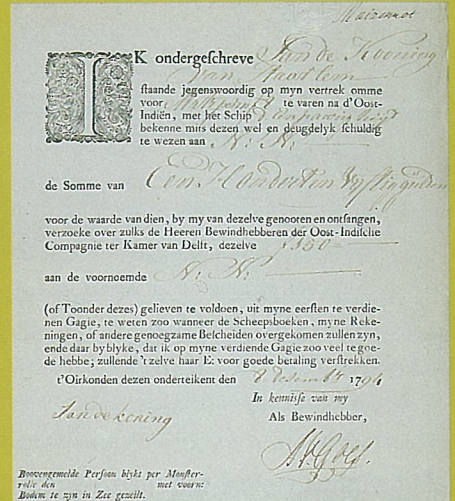 IK ondergeschreve Jan de Kooning
van Haarlem
staande jegenswoordig op myn vertrek omme
voor te varen na d'Oost-
Indiën, met het Schip
bekenne mits dezen wel en deugdelyk schuldig
te wezen aan N: N:
de Somme van Een Hondert en Vyftig gulden
voor de waarde van dien, by my van dezelve genooten en ontfangen,
verzoeke over zulks de Heeren Bewindhebberen der Oost-Indische
Compagnie ter Kamer van Delft, dezelve ƒ150=
aan de voornoemde N: N:
(of Toonder dezes) gelieven te voldoen, uit myne eersten te verdie-
nen Gagie, te weten zoo wanneer de Scheepsboeken, myne Reke-
ningen, of andere genoegzame Bescheiden overgekomen zullen zyn,
ende daar by blyke, dat ik op myne verdiende Gagie zoo veel te goe-
de hebbe; zullende 't zelve haar E: voor goede betaling verstrekken.
t'Oirkonden dezen onderteikent den 8 desembr 1794
In kennisse van my
Jan de koning
Als Bewindhebber,
Boovengemelde Persoon blykt per Monster-
rolle den met voorn:
Bodem te zyn in Zee gezeilt.